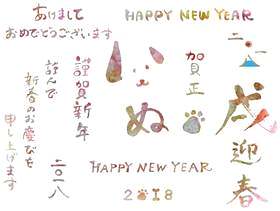 あけまして
おめでとうございます
HAPPY NEW YEAR
賀正
戌
迎春
いぬ
謹賀新年
謹んで
新春のお慶びを
申し上げます
二〇一八
HAPPY NEW YEAR
2018